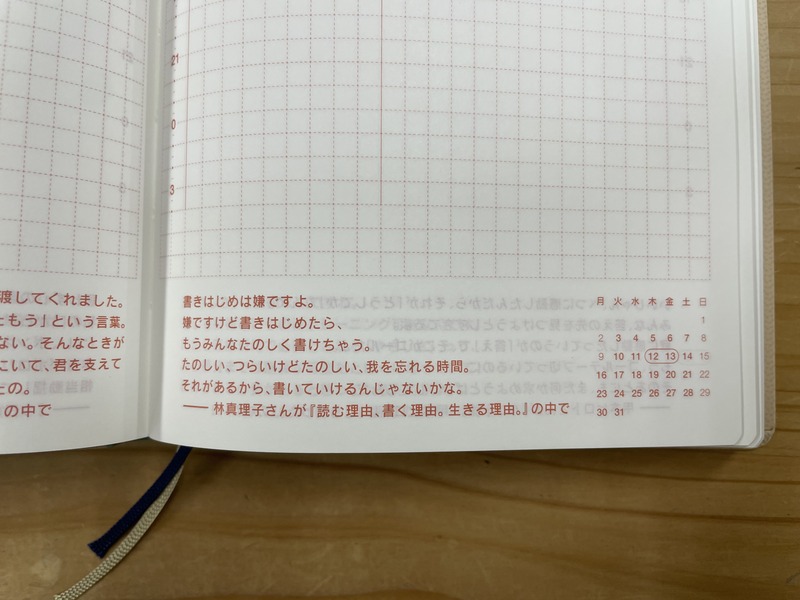 21
0
3
渡してくれました。
ともう」という言葉。
ない。そんなときが
こいて、君を支えて
との。
の中で
書きはじめは嫌ですよ。
嫌ですけど書きはじめたら、
もうみんなたのしく書けちゃう。
たのしい、つらいけどたのしい、我を忘れる時間。
それがあるから、書いていけるんじゃないかな。
—— 林真理子さんが『読む理由、書く理由。生きる理由。』の中で
月 火 水 木 金 土 日
1
2 3 4 5 6 7 8
9 10 11 12 13 14 15
16 17 18 19 20 21 22
23 24 25 26 27 28 29
30 31